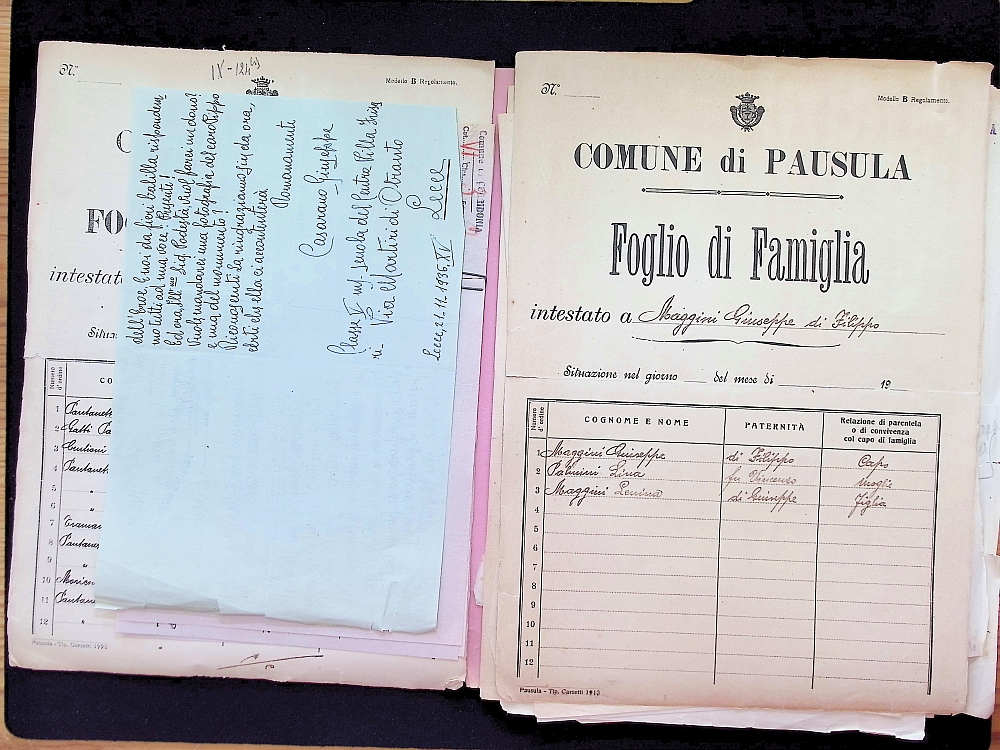 N.°
IV - 124
Modello B Regolamento.
FO
intestat
Situa
Numero d'ordine
CO
1 Pantanet
2 Gatti Pa
3
4 Pantanet
5 "
6 "
7
8 Pantane
9 "
10
11 Pantan
12 "
Pausula - Tip. Carzetti 1920
dell'Eroe. E noi da fieri balilla risponde
mo tutti ad una voce: Presenti!
Ed ora, Ill.mo Sig. Podestà, vuol farci un dono?
Vuol mandarci una fotografia del caro Pippo
e una del monumento?
Riconoscenti La ringraziamo fin da ora,
certi ch'ella ci accontenterà
Romanamente
Casarano Giuseppe
Classe V m/ Scuola del Centro Villa
Via Martiri di Otranto
Lecce
Lecce, 21.11.1936.XV
Comune
N.°
Modello B Regolamento.
COMUNE di PAUSULA
Foglio di Famiglia
intestato a Maggini Giuseppe di Filippo
Situazione nel giorno del mese di 19
Numero d'ordine
COGNOME E NOME
PATERNITÀ
Relazione di parentela o di convivenza col capo di famiglia
1 Maggini Giuseppe di Filippo Capo
2 Palmini Lina fu Vincenzo Moglie
3 Maggini Penina di Giuseppe Figlia
4
5
6
7
8
9
10
11
12
Pausula - Tip. Carzetti 1913